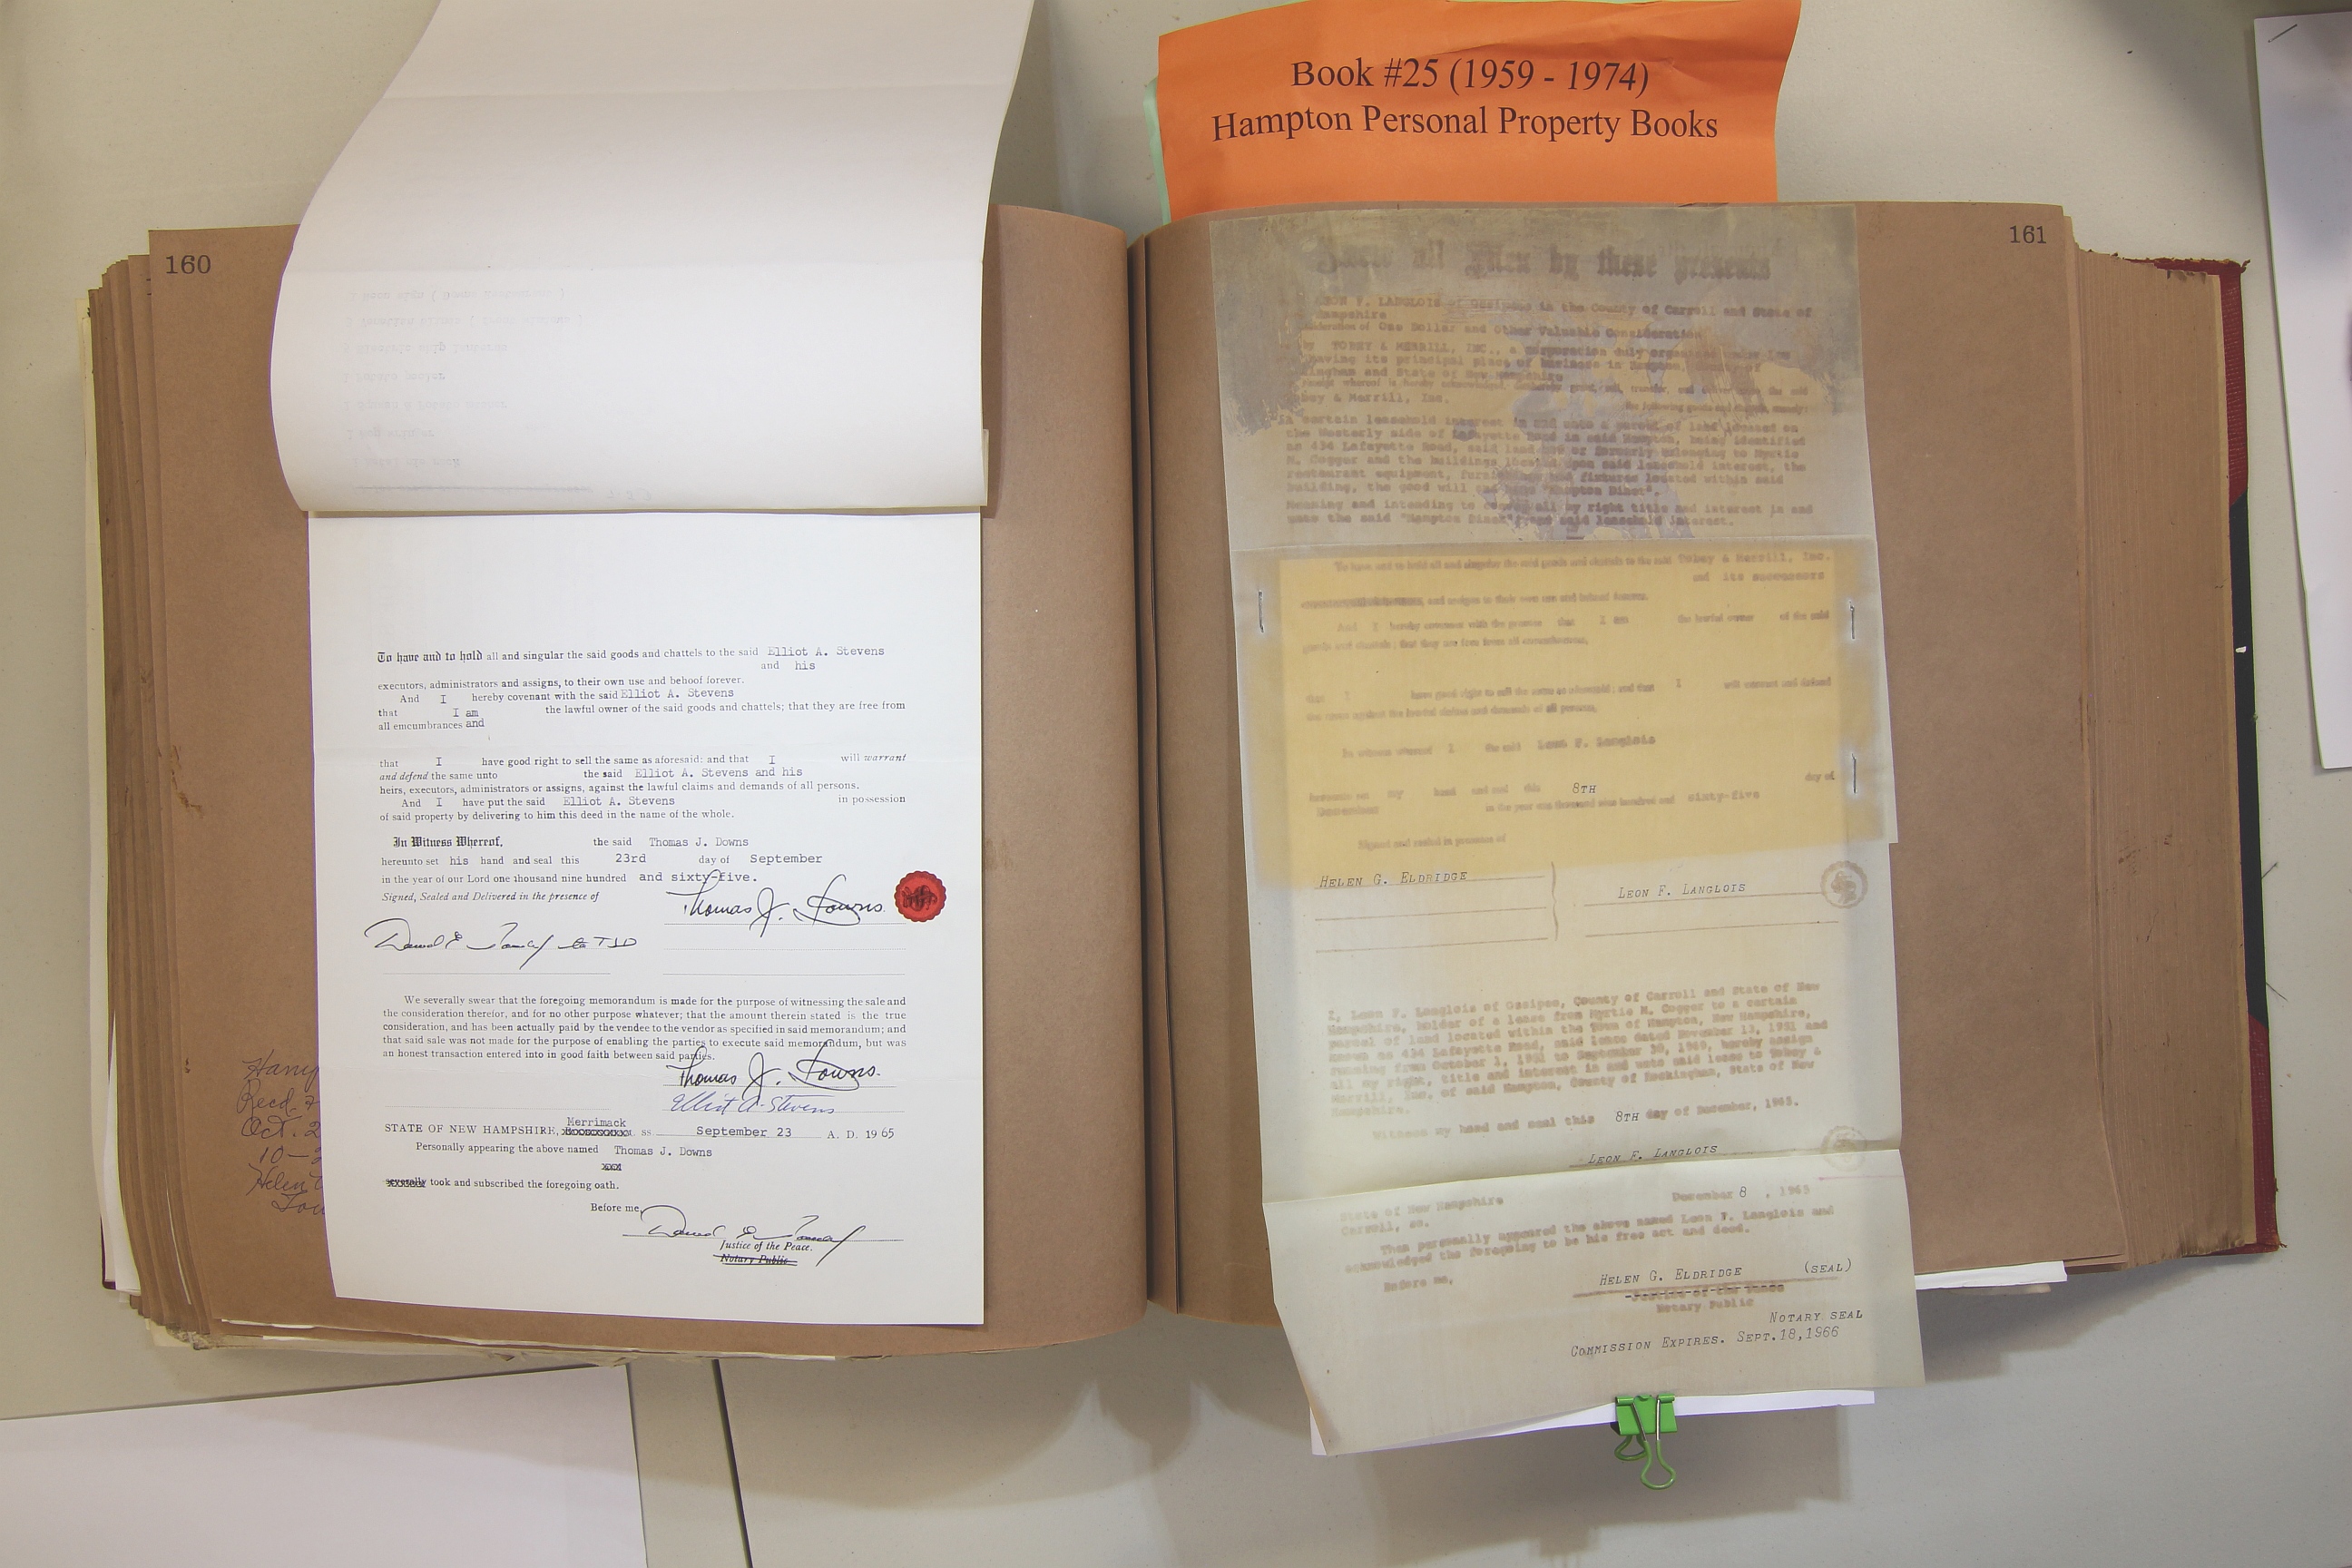 Book #25 (1959 - 1974)
Hampton Personal Property Books
160
To have and to hold all and singular the said goods and chattels to the said Elliot A. Stevens
and his
executors, administrators and assigns, to their own use and behoof forever.
And I hereby covenant with the said Elliot A. Stevens
that I am the lawful owner of the said goods and chattels; that they are free from
all emcumbrances and
that I have good right to sell the same as aforesaid: and that I will warrant
and defend the same unto the said Elliot A. Stevens and his
heirs, executors, administrators or assigns, against the lawful claims and demands of all persons.
And I have put the said Elliot A. Stevens in possession
of said property by delivering to him this deed in the name of the whole.
In Witness Whereof, the said Thomas J. Downs
hereunto set his hand and seal this 23rd day of September
in the year of our Lord one thousand nine hundred and sixty-five.
Signed, Sealed and Delivered in the presence of
Thomas J. Downs
to TJD
We severally swear that the foregoing memorandum is made for the purpose of witnessing the sale and
the consideration therefor, and for no other purpose whatever; that the amount therein stated is the true
consideration, and has been actually paid by the vendee to the vendor as specified in said memorandum; and
that said sale was not made for the purpose of enabling the parties to execute said memorandum, but was
an honest transaction entered into in good faith between said parties.
Thomas J. Downs
Elliot A. Stevens
Merrimack
STATE OF NEW HAMPSHIRE, ss September 23 A. D. 1965
Personally appearing the above named Thomas J. Downs
severally took and subscribed the foregoing oath.
Before me,
Justice of the Peace.
Notary Public
Hamp
Recd
Oct. 2
10-
Helen
161
Know all Men by these presents
LEON F. LANGLOIS of Ossipee in the County of Carroll and State of
Hampshire
One Dollar and Other Valuable Consideration
TOBEY & MERRILL, INC., a corporation duly organized under Law
having its principal place of business in Hampton, County of
ingham and State of New Hampshire
receipt whereof is hereby acknowledged,
bey & Merrill, Inc.
the following goods and chattels, namely:
A certain leasehold interest in and unto a parcel of land located on
the Westerly side of Lafayette Road in said Hampton, being identified
as 434 Lafayette Road, said land now or formerly belonging to Myrtie
M. Cogger and the buildings located upon said leasehold interest, the
restaurant equipment, furnishings and fixtures located within said
building, the good will and name "Hampton Diner".
Meaning and intending to convey all my right title and interest in and
unto the said "Hampton Diner" and said leasehold interest.
To have and to hold all and singular the said goods and chattels to the said Tobey & Merrill, Inc.
and its successors
and assigns to their own use and behoof forever.
And I hereby covenant with the grantee that I am the lawful owner of the said
goods and chattels; that they are free from all encumbrances,
that I have good right to sell the same as aforesaid; and that I will warrant and defend
the same against the lawful claims and demands of all persons.
In witness whereof I the said Leon F. Langlois
hereunto set my hand and seal this 8TH day of
December in the year one thousand nine hundred and sixty-five
Signed and sealed in presence of
HELEN G. ELDRIDGE
LEON F. LANGLOIS
I, Leon F. Langlois of Ossipee, County of Carroll and State of New
Hampshire, holder of a lease from Myrtie M. Cogger to a certain
parcel of land located within the Town of Hampton, New Hampshire,
known as 434 Lafayette Road, said lease dated November 13, 1961 and
running from October 1, 1961 to September 30, hereby assign
all my right, title and interest in and unto said lease to Tobey &
Merrill, Inc. of said Hampton, County of Rockingham, State of New
Hampshire.
Witness my hand and seal this 8TH day of December, 1965.
LEON F. LANGLOIS
State of New Hampshire
Carroll, ss. December 8 , 1965
Then personally appeared the above named Leon F. Langlois and
acknowledged the foregoing to be his free act and deed.
Before me,
HELEN G. ELDRIDGE (SEAL)
Justice of the Peace
Notary Public
NOTARY SEAL
COMMISSION EXPIRES. SEPT.18,1966